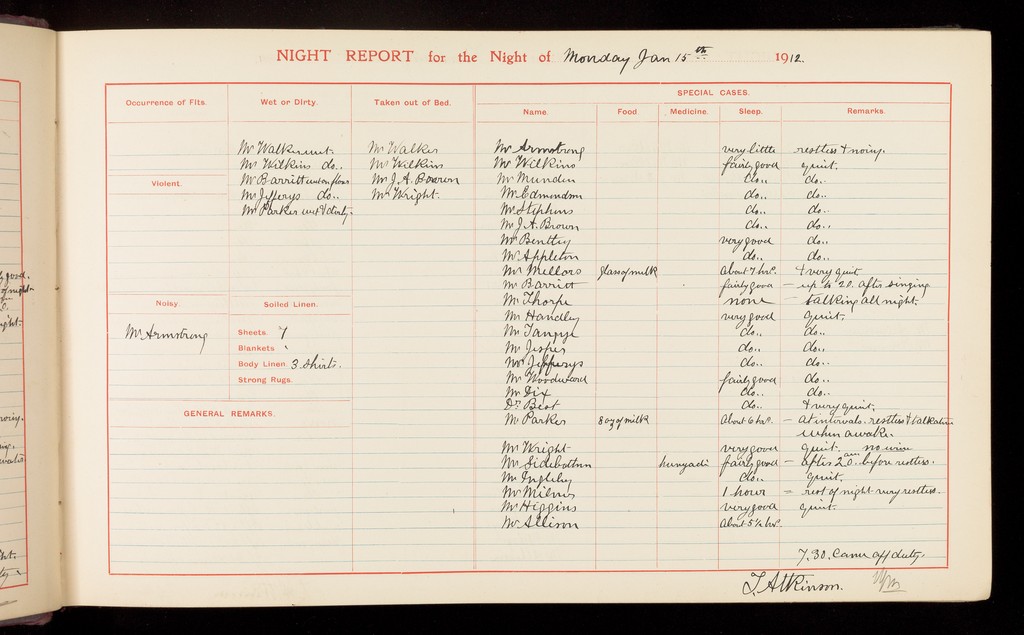 NIGHT REPORT for the Night of Monday Jan 15th 1912.
SPECIAL CASES.
Occurrence of Fits. Wet or Dirty. Taken out of Bed. Name. Food Medicine. Sleep. Remarks.
Mr Walker wet. Mr Walker Mr Armstrong very little restless & noisy.
Mr Wilkins do.. Mr Wilkins Mr Wilkins fairly good quiet.
Violent. Mr Barritt wet on floor Mr J.A. Brown Mr Munden do.. do..
Mr Jefferys do.. Mr Wright. Mr Edmondson do.. do..
Mr Parker wet & dirty. Mr Stephens do.. do..
Mr J.A. Brown do.. do..
Mr Bentley very good do..
Mr Appleton do.. do..
Mr Mellors glass of milk About 7 hrs. & very quiet
Mr Barritt fairly good - up to 2.0. after singing
Noisy. Soiled Linen. Mr Thorpe none - talking all night.
Mr Handley very good quiet.
Mr Armstrong Sheets 7 Mr Tangye do.. do..
Blankets " Mr Jesper do.. do..
Body Linen 3 Shirts. Mr Jefferys do.. do..
Strong Rugs. Mr Woodward fairly good do..
Mr Dix do.. do..
GENERAL REMARKS. Dr Best do.. & very quiet.
Mr Parker 8 oz of milk About 6 hrs. - at intervals. restless & talkative
when awake
Mr Wright very good quiet. no urine
Mr Sidebottom hunyadi fairly good - after 2.0 am before restless.
Mr Ingleby do.. quiet.
Mr Milnes 1 hour = rest of night very restless.
Mr Higgins very good quiet.
Mr Allison About 5½ hrs.
7.30. Came off duty.
T. Atkinson.